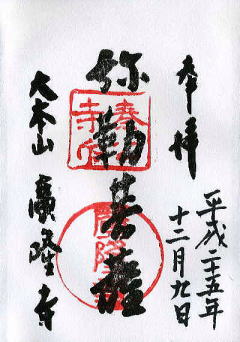 奉拝
平成二十五年
十二月九日
弥勒菩薩
大本山 廣隆寺